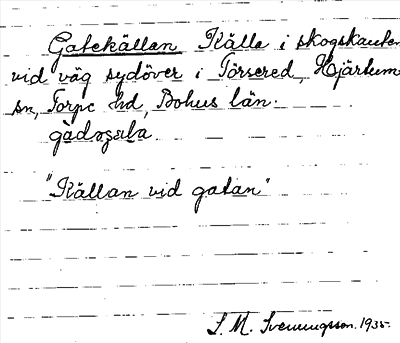 Gatekällan Källa i skogskanten
vid väg sydöver i Törsered, Hjärtum
sn, Torpe hd, Bohus län.
"Källan vid gatan"
S. M. Svenungsson. 1935.